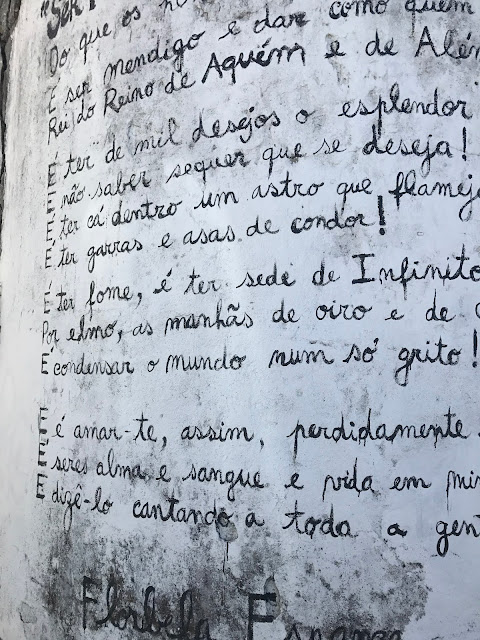 "Ser
Do que os
É ser mendigo e dar como quem
Rei do Reino de Aquém e de Além
É ter de mil desejos o esplendor
E não saber sequer que se deseja!
É ter cá dentro um astro que flameja
É ter garras e asas de condor!
É ter fome, é ter sede de Infinito
Por elmo, as manhãs de oiro e de
É condensar o mundo num só grito!
E é amar-te, assim, perdidamente
E seres alma e sangue e vida em mim
E dizê-lo cantando a toda a gen
Florbela Espanca